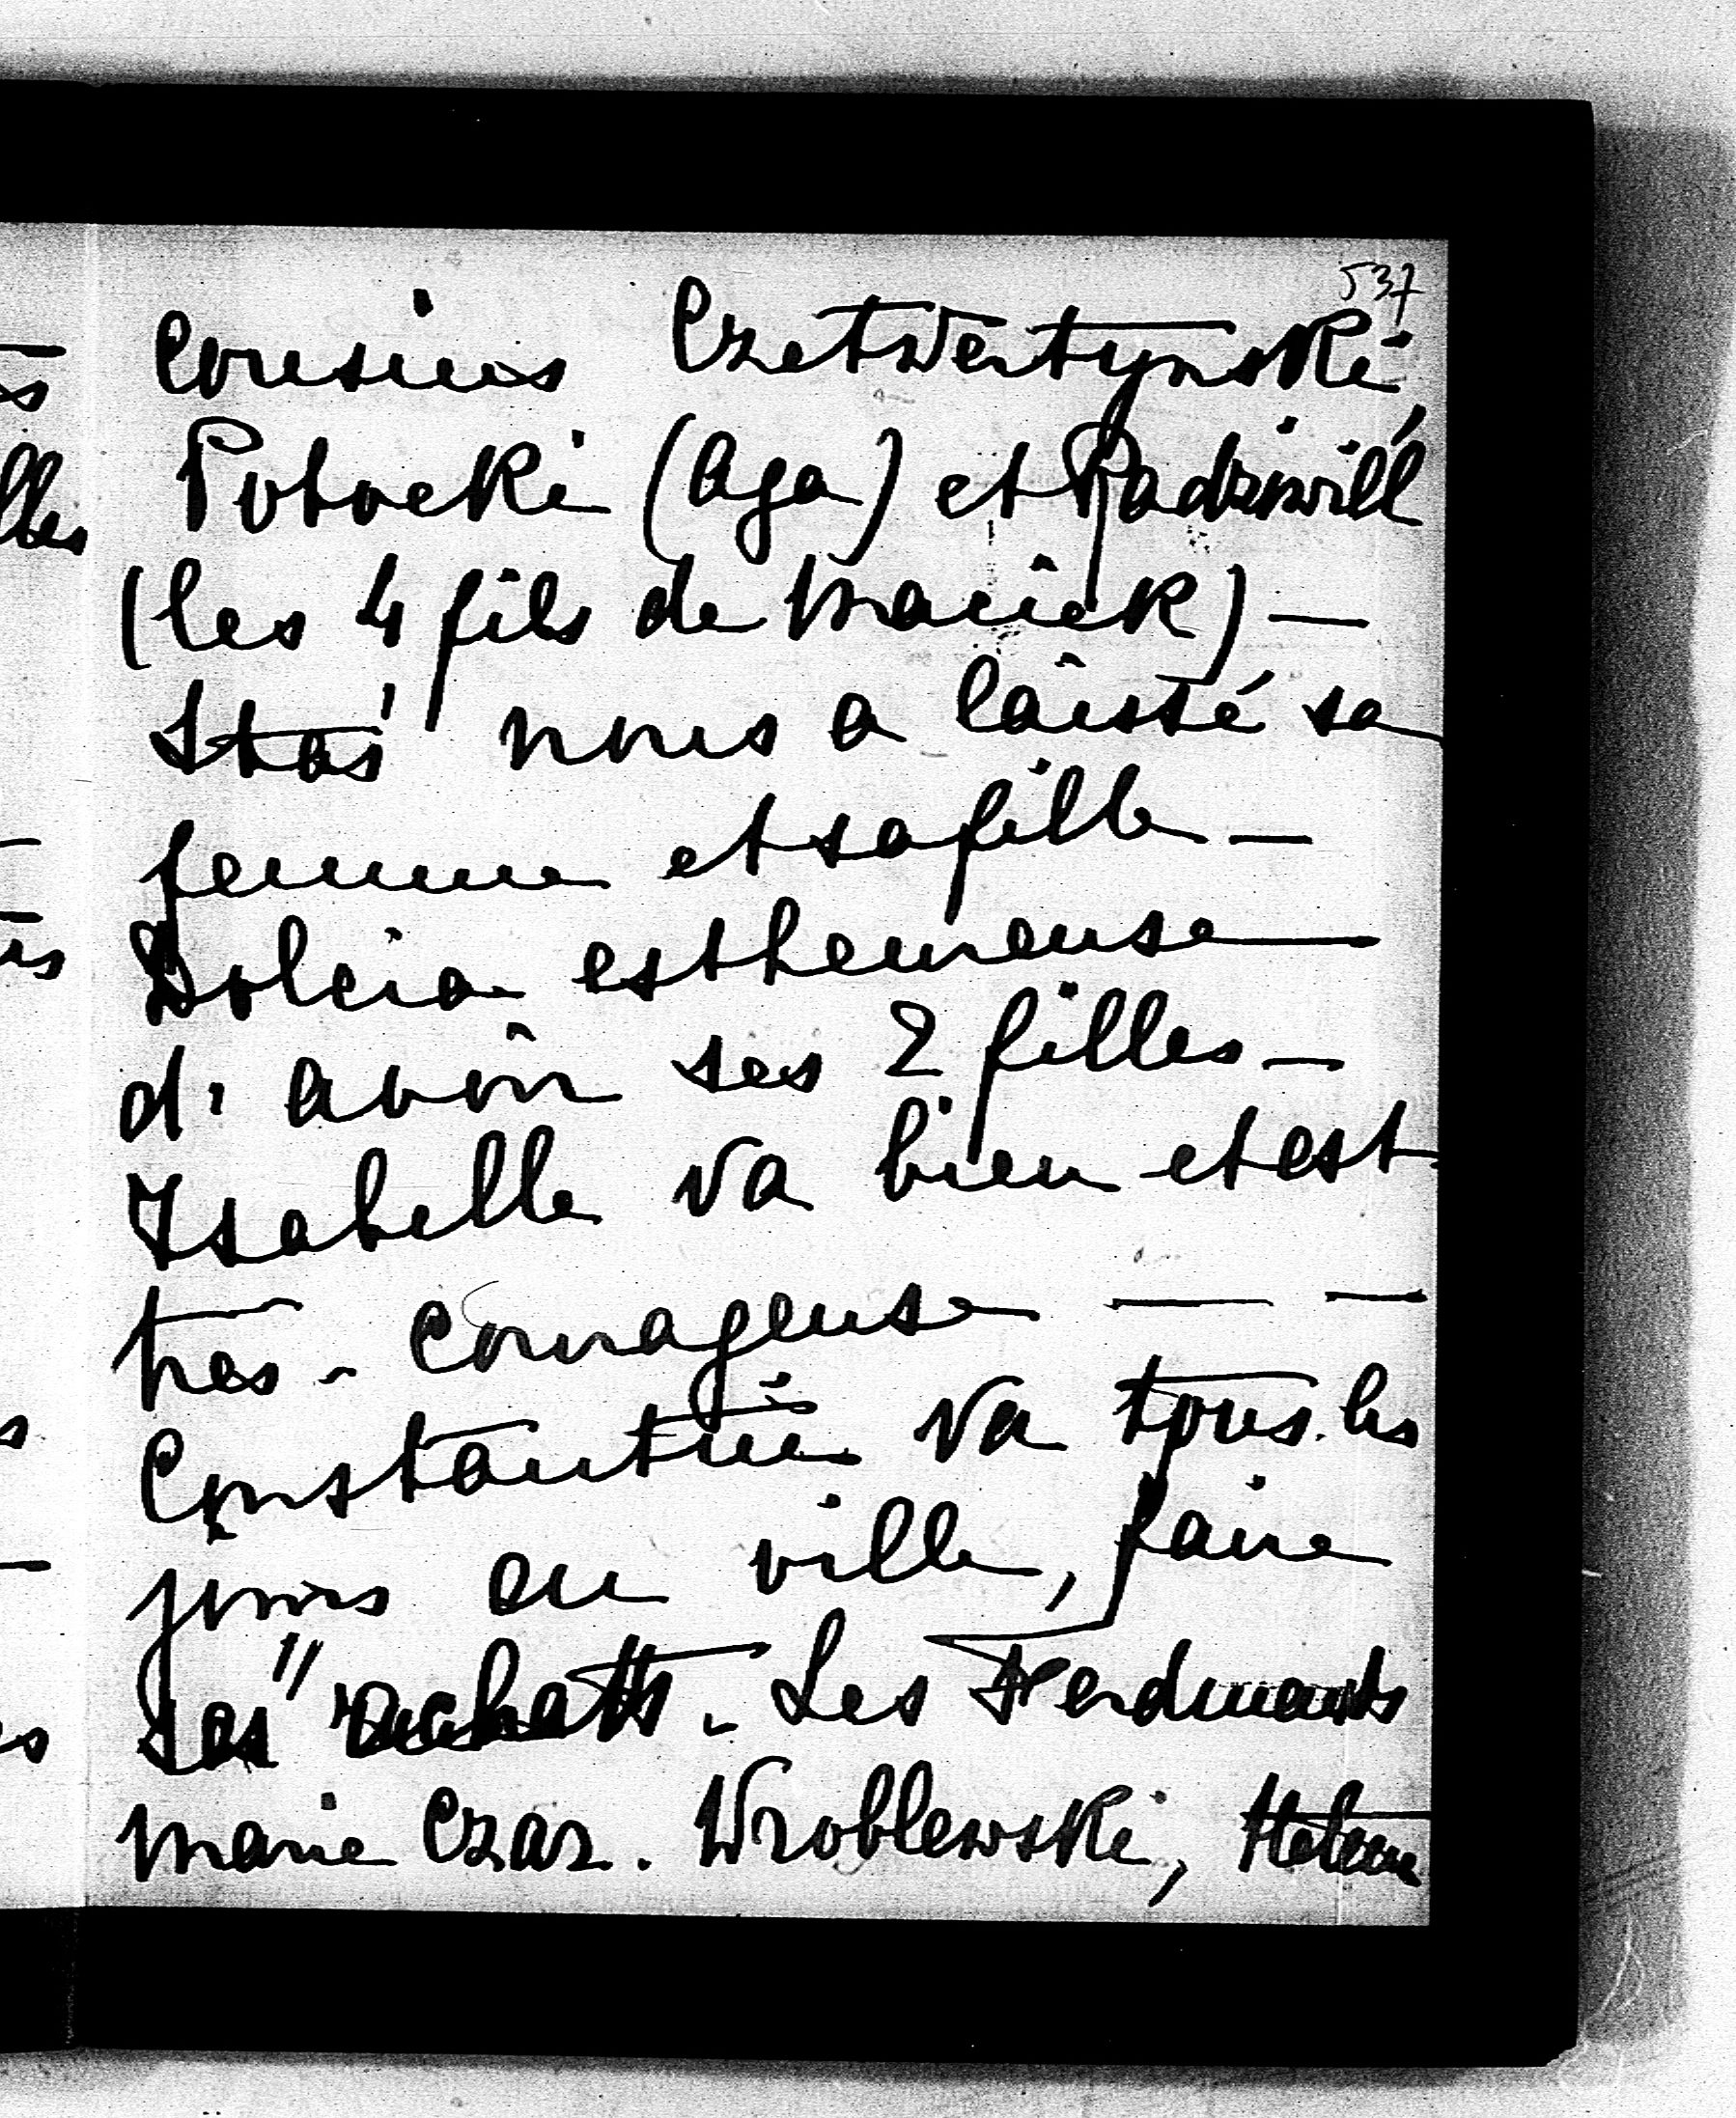 537
cousins Czetwertynski,
Potocki (Aga) et Radziwill
(les 4 fils de Maciek) —
Staś nous a laissé sa
femme et sa fille —
Dolcia est heureuse —
d'avoir ses 2 filles —
Isabelle va bien et est
très - courageuse — —
Constantin va tous les
jours en ville, faire
les " - Les Ferdinands
Marie Czar. Wroblewski, Helene